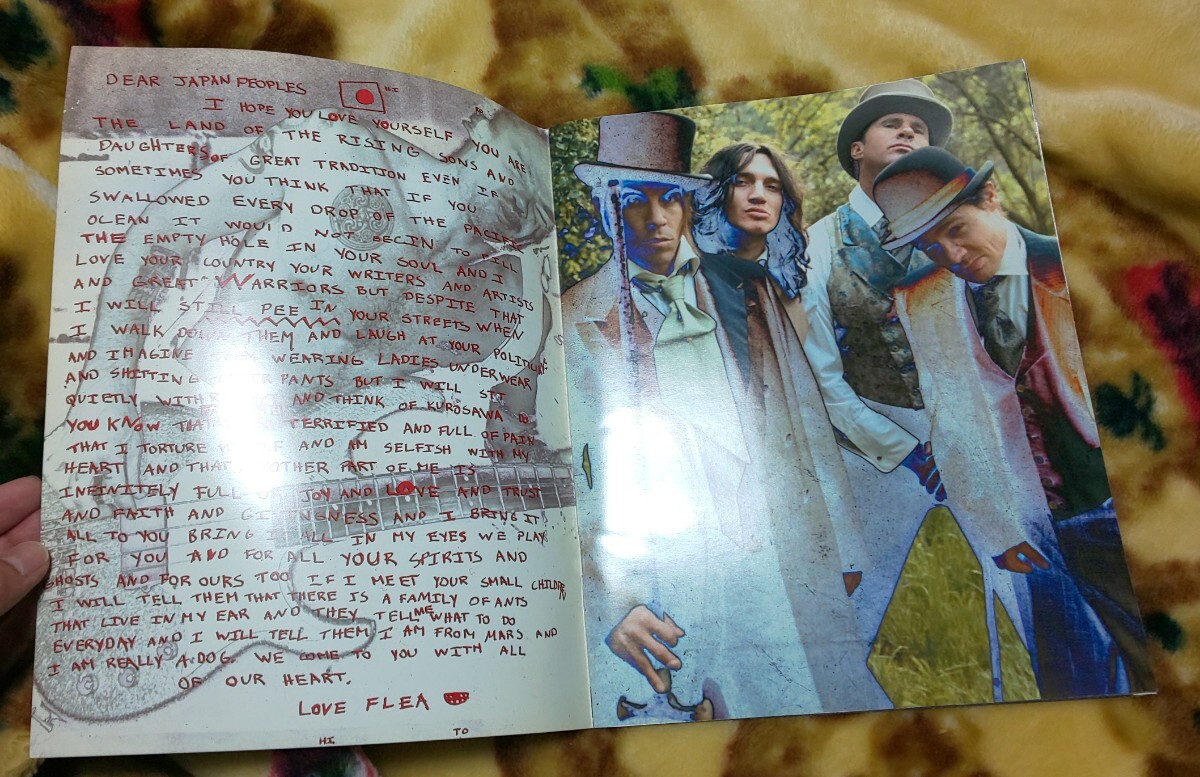 DEAR JAPAN PEOPLES "HI
I HOPE YOU LOVE YOURSELF YOU ARE
THE LAND OF THE RISING SONS AND
DAUGHTERS OF GREAT TRADITION EVEN IF
SOMETIMES YOU THINK THAT IF YOU
SWALLOWED EVERY DROP OF THE PACIFIC
OCEAN IT WOULD NOT BEGIN TO FILL
THE EMPTY HOLE IN YOUR SOUL AND I
LOVE YOUR COUNTRY YOUR WRITERS AND ARTISTS
AND GREAT WARRIORS BUT DESPITE THAT
I WILL STILL PEE IN YOUR STREETS WHEN
I WALK DOWN THEM AND LAUGH AT YOUR
AND IMAGINE WEARING LADIES UNDERWEAR
AND SHITTING PANTS BUT I WILL SIT
QUIETLY AND THINK OF KUROSAWA
YOU KNOW TERRIFIED AND FULL OF PAIN
THAT I TORTURE AND AM SELFISH WITH MY
HEART AND THAT OTHER PART OF ME IS
INFINITELY FULL OF JOY AND LOVE AND TRUST
AND FAITH AND GIVINGNESS AND I BRING IT
ALL TO YOU BRING IT ALL IN MY EYES WE PLAY
FOR YOU AND FOR ALL YOUR SPIRITS AND
GHOSTS AND FOR OURS TOO IF I MEET YOUR SMALL CHILDREN
I WILL TELL THEM THAT THERE IS A FAMILY OF ANTS
THAT LIVE IN MY EAR AND THEY TELL ME WHAT TO DO
EVERYDAY AND I WILL TELL THEM I AM FROM MARS AND
I AM REALLY A DOG. WE COME TO YOU WITH ALL
OF OUR HEART.
LOVE FLEA
HI TO